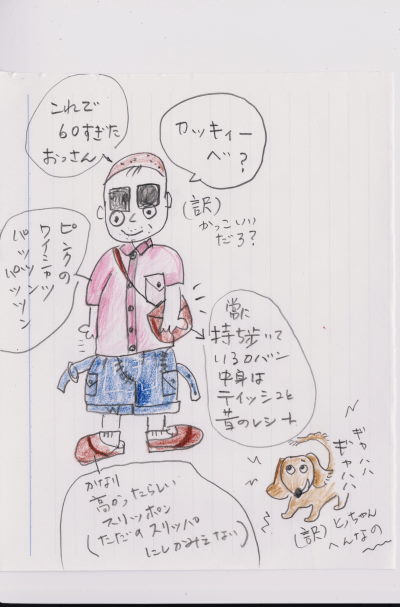 これで
60すぎた
おっさん
カッキィー
べ?
(訳)
かっこいい
だろ?
ピンクの
ワイシャツ
パッツンパッツン
常に
持ち歩いて
いるバン
中身は
ティッシュと
昔のレシート
かなり
高かったらしい
スリッポン
(ただのスリッパ
にしかみえない)
ギャハハ
ギャハハハ
(訳)とっちゃん
へんなの